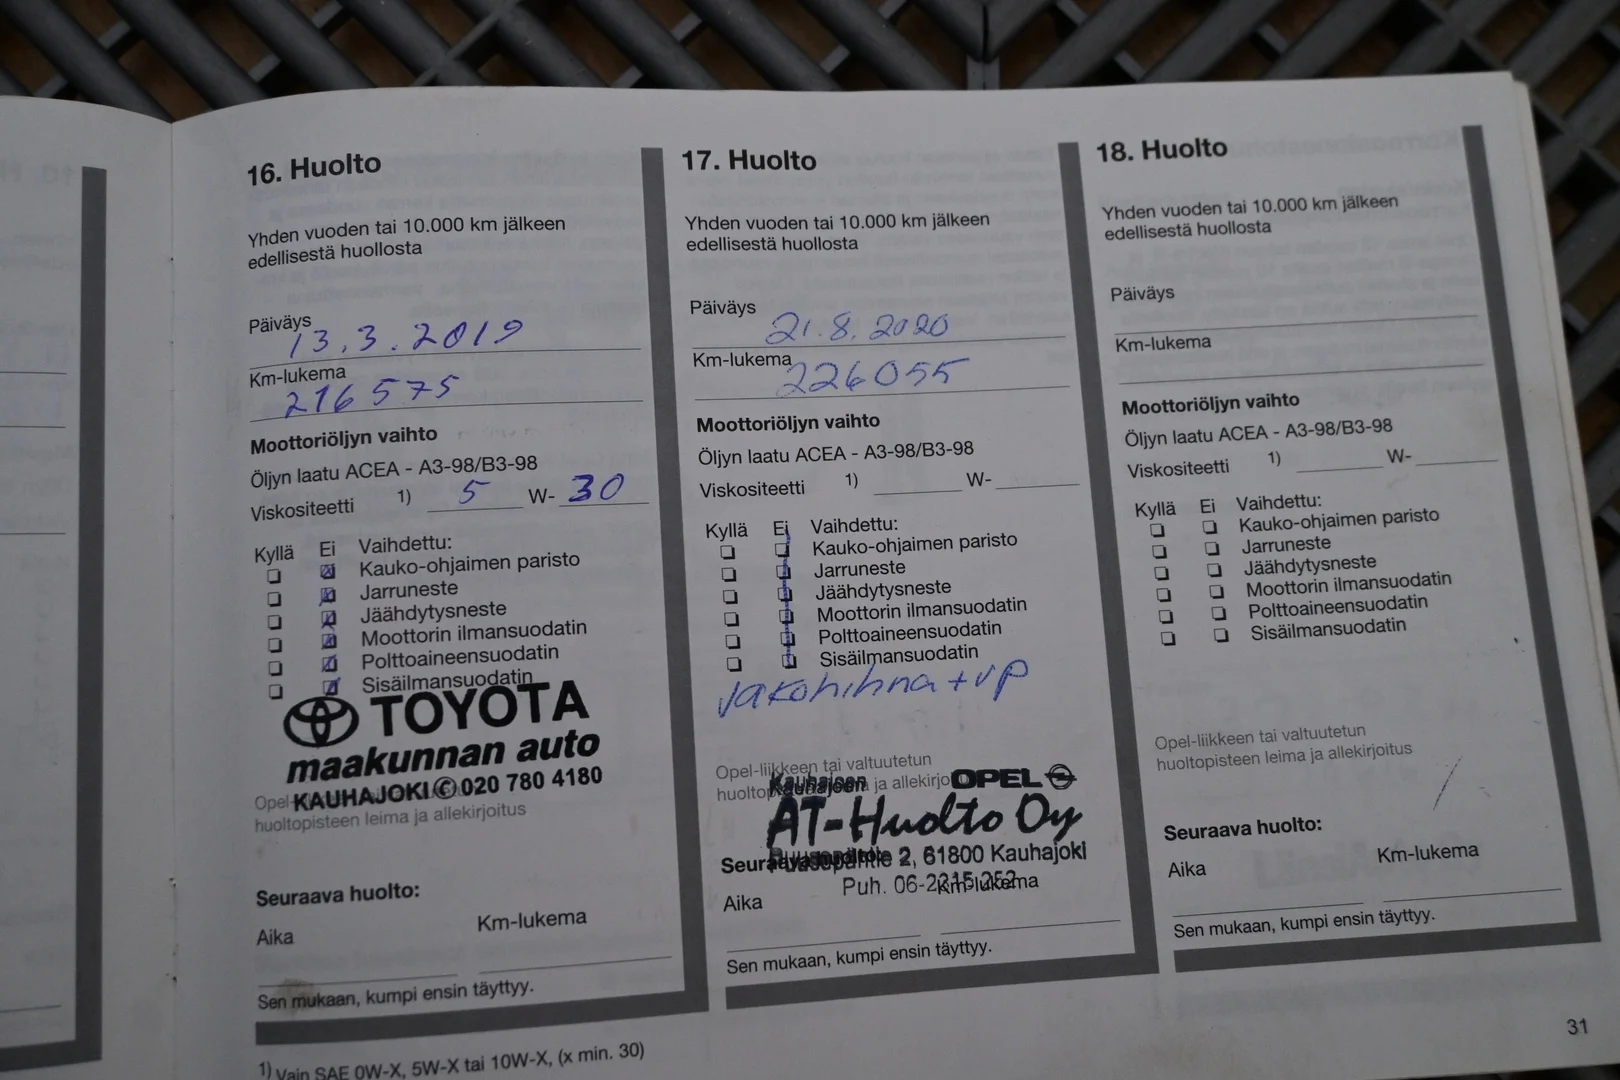 16. Huolto
Yhden vuoden tai 10.000 km jälkeen
edellisestä huollosta
Päiväys
13.3.2019
Km-lukema
216575
Moottoriöljyn vaihto
Öljyn laatu ACEA - A3-98/B3-98
Viskositeetti 1) 5 W- 30
Kyllä Ei Vaihdettu:
Kauko-ohjaimen paristo
Jarruneste
Jäähdytysneste
Moottorin ilmansuodatin
Polttoaineensuodatin
Sisäilmansuodatin
TOYOTA
maakunnan auto
KAUHAJOKI ✆ 020 780 4180
Opel-
huoltopisteen leima ja allekirjoitus
Seuraava huolto:
Aika Km-lukema
Sen mukaan, kumpi ensin täyttyy.
1) Vain SAE 0W-X, 5W-X tai 10W-X, (x min. 30)
17. Huolto
Yhden vuoden tai 10.000 km jälkeen
edellisestä huollosta
Päiväys
21.8.2020
Km-lukema
226055
Moottoriöljyn vaihto
Öljyn laatu ACEA - A3-98/B3-98
Viskositeetti 1) W-
Kyllä Ei Vaihdettu:
Kauko-ohjaimen paristo
Jarruneste
Jäähdytysneste
Moottorin ilmansuodatin
Polttoaineensuodatin
Sisäilmansuodatin
Jakohihna + vp
Opel-liikkeen tai valtuutetun
ja allekirjo
Kauhajoen OPEL
AT-Huolto Oy
Seuraava huolto:
2, 61800 Kauhajoki
Puh. 06-2315 252
Aika Km-lukema
Sen mukaan, kumpi ensin täyttyy.
18. Huolto
Yhden vuoden tai 10.000 km jälkeen
edellisestä huollosta
Päiväys
Km-lukema
Moottoriöljyn vaihto
Öljyn laatu ACEA - A3-98/B3-98
Viskositeetti 1) W-
Kyllä Ei Vaihdettu:
Kauko-ohjaimen paristo
Jarruneste
Jäähdytysneste
Moottorin ilmansuodatin
Polttoaineensuodatin
Sisäilmansuodatin
Opel-liikkeen tai valtuutetun
huoltopisteen leima ja allekirjoitus
Seuraava huolto:
Aika Km-lukema
Sen mukaan, kumpi ensin täyttyy.
31